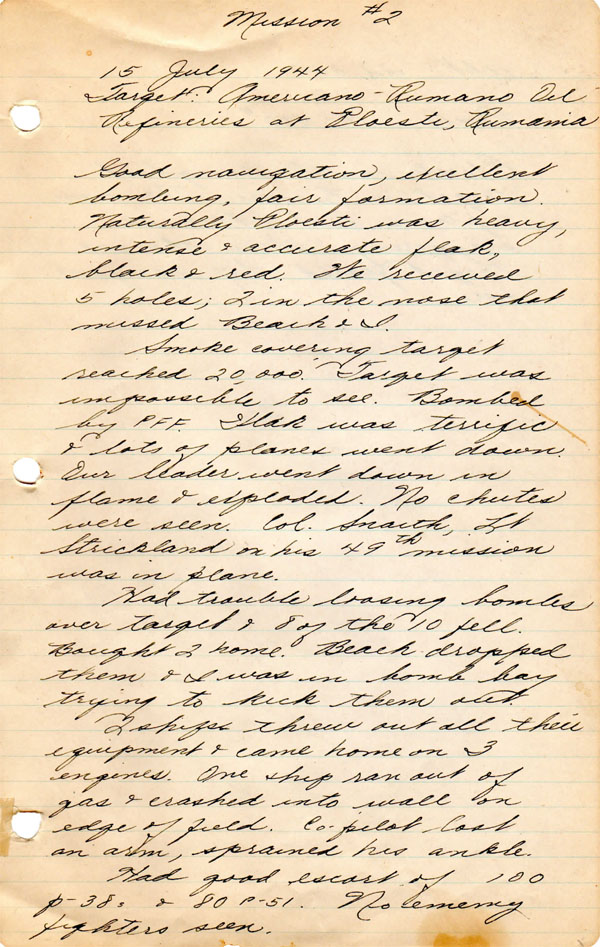 Mission #2
15 July 1944
Target: Americano-Rumano Oil
Refineries at Ploesti, Rumania
Good navigation, exellent
bombing, fair formation.
Naturally Ploesti was heavy,
intense & accurate flak,
black & red. We received
5 holes; 2 in the nose that
missed Beach & I.
Smoke covering target
reached 20,000.' Target was
impossible to see. Bombed
by PFF. Flak was terrific
& lots of planes went down.
Our leader went down in
flame & exploded. No chutes
were seen. Col. Snaith, Lt
Strickland on his 49th mission
was in plane.
Had trouble loosing bombs
over target & 8 of the 10 fell.
Bought 2 home. Beach dropped
them & I was in bomb bay
trying to kick them out.
2 ships threw out all their
equipment & came home on 3
engines. One ship ran out of
gas & crashed into wall on
edge of field. Co-pilot lost
an arm, sprained his ankle.
Had good escort of 100
p-38s & 80 P-51. No enemy
fighters seen.